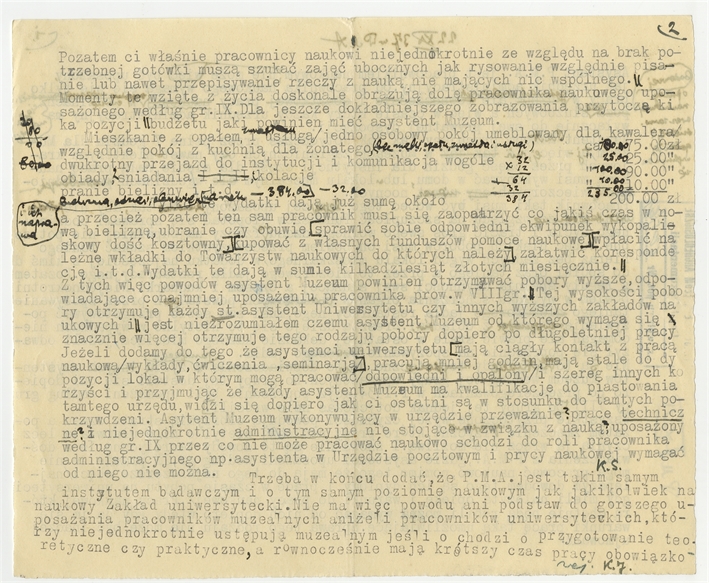 2
Pozatem ci właśnie pracownicy naukowi niejednokrotnie ze względu na brak po-
trzebnej gotówki muszą szukać zajęć ubocznych jak rysowanie względnie pisa-
nie lub nawet przepisywanie rzeczy z nauką nie mających nic wspólnego.
Momenty te wzięte z życia doskonale obrazują dolę pracownika naukowego upo-
sażonego według gr.IX.Dla jeszcze dokładniejszego zobrazowania przytoczę ki
ka pozycji budżetu jaki powinien mieć asystent Muzeum.
Mieszkanie z opałem, usługą/jedno osobny pokój umeblowany dla kawalera/
względnie pokój z kuchnią dla żonatego
dwukrotny przejazd do instytucji i komunikacja wogóle
obiady, śniadania kolacje
pranie bielizny
- 384.00 - 32.00
32
x 12
64
32
384
75.00zł
25.00"
10.00"
235.00
200.00 zł
datki dają już sumę około
a przecież pozatem ten sam pracownik musi się zaopatrzyć co jakiś czas w no-
wą bieliznę,ubranie czy obuwie sprawić sobie odpowiedni ekwipunek wykopalie
skowy dość kosztowny kupować z własnych funduszów pomoce naukowe wpłacić na
leżne wkładki do Towarzystw naukowych do których należy załatwić koresponde
cję i.t.d.Wydatki te dają w sumie kilkadziesiąt złotych miesięcznie.
Z tych więc powodów asystent uzeum powinien otrzymywać pobory wyższe,odpo-
wiadające conajmniej uposażeniu pracownika prow.w VIIIgr. Tej wysokości pobo
ry otrzymuje każdy st.asystent Uniwersytetu czy innych wyższych zakładów na
ukowych i jest niezrozumiałem czemu asystent Muzeum od którego wymaga się
znacznie więcej otrzymuje tego rodzaju pobory dopiero po długoletniej pracy
Jeżeli dodamy do tego że asystenci uniwersytetu mają ciągły kontakt z pracą
naukową/wykłady,ćwiczenia ,seminarja/ pracują mniej godzin,mają stale do dy
pozycji lokal w którym mogą pracować/odpowiedni i opalony/i szereg innych ko
rzyści i przyjmując że każdy asystent Muzeum ma kwalifikacje do piastowania
tamtego urzędu,widzi się dopiero jak ci ostatni są w stosunku do tamtych po-
krzywdzeni. Asytent Muzeum wykonywujący w urzędzie przeważnie prace technicz
ne i niejednokrotnie administracyjne nie stojące w związku z nauką uposażony
według gr.IX przez co nie może pracować naukowo schodzi do roli pracownika
administracyjnego np.asystenta w Urzędzie pocztowym i prycy naukowej wymagać
od niego nie można.
K.S.
Trzeba w końcu dodać,że P.M.A.jest takim samym
instytutem badawczym i o tym samym poziomie naukowym jak jakikolwiek na
naukowy Zakład uniwersytecki.Nie ma więc powodu ani podstaw do gorszego u-
posażania pracowników muzealnych aniżeli pracowników uniwersyteckich,któ-
rzy niejednokrotnie ustępują muzealnym jeśli o chodzi o przygotowanie teo
retyczne czy praktyczne,a równocześnie mają krótszy czas pracy obowiązko-
K.J.